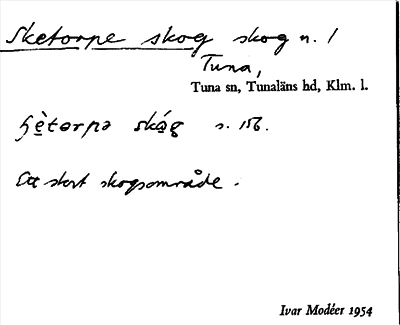 Sketorpe skog skog n. 1
Tuna,
Tuna sn, Tunaläns hd, Klm. l.
s. 156.
Ett stort skogsområde.
Ivar Modéer 1954